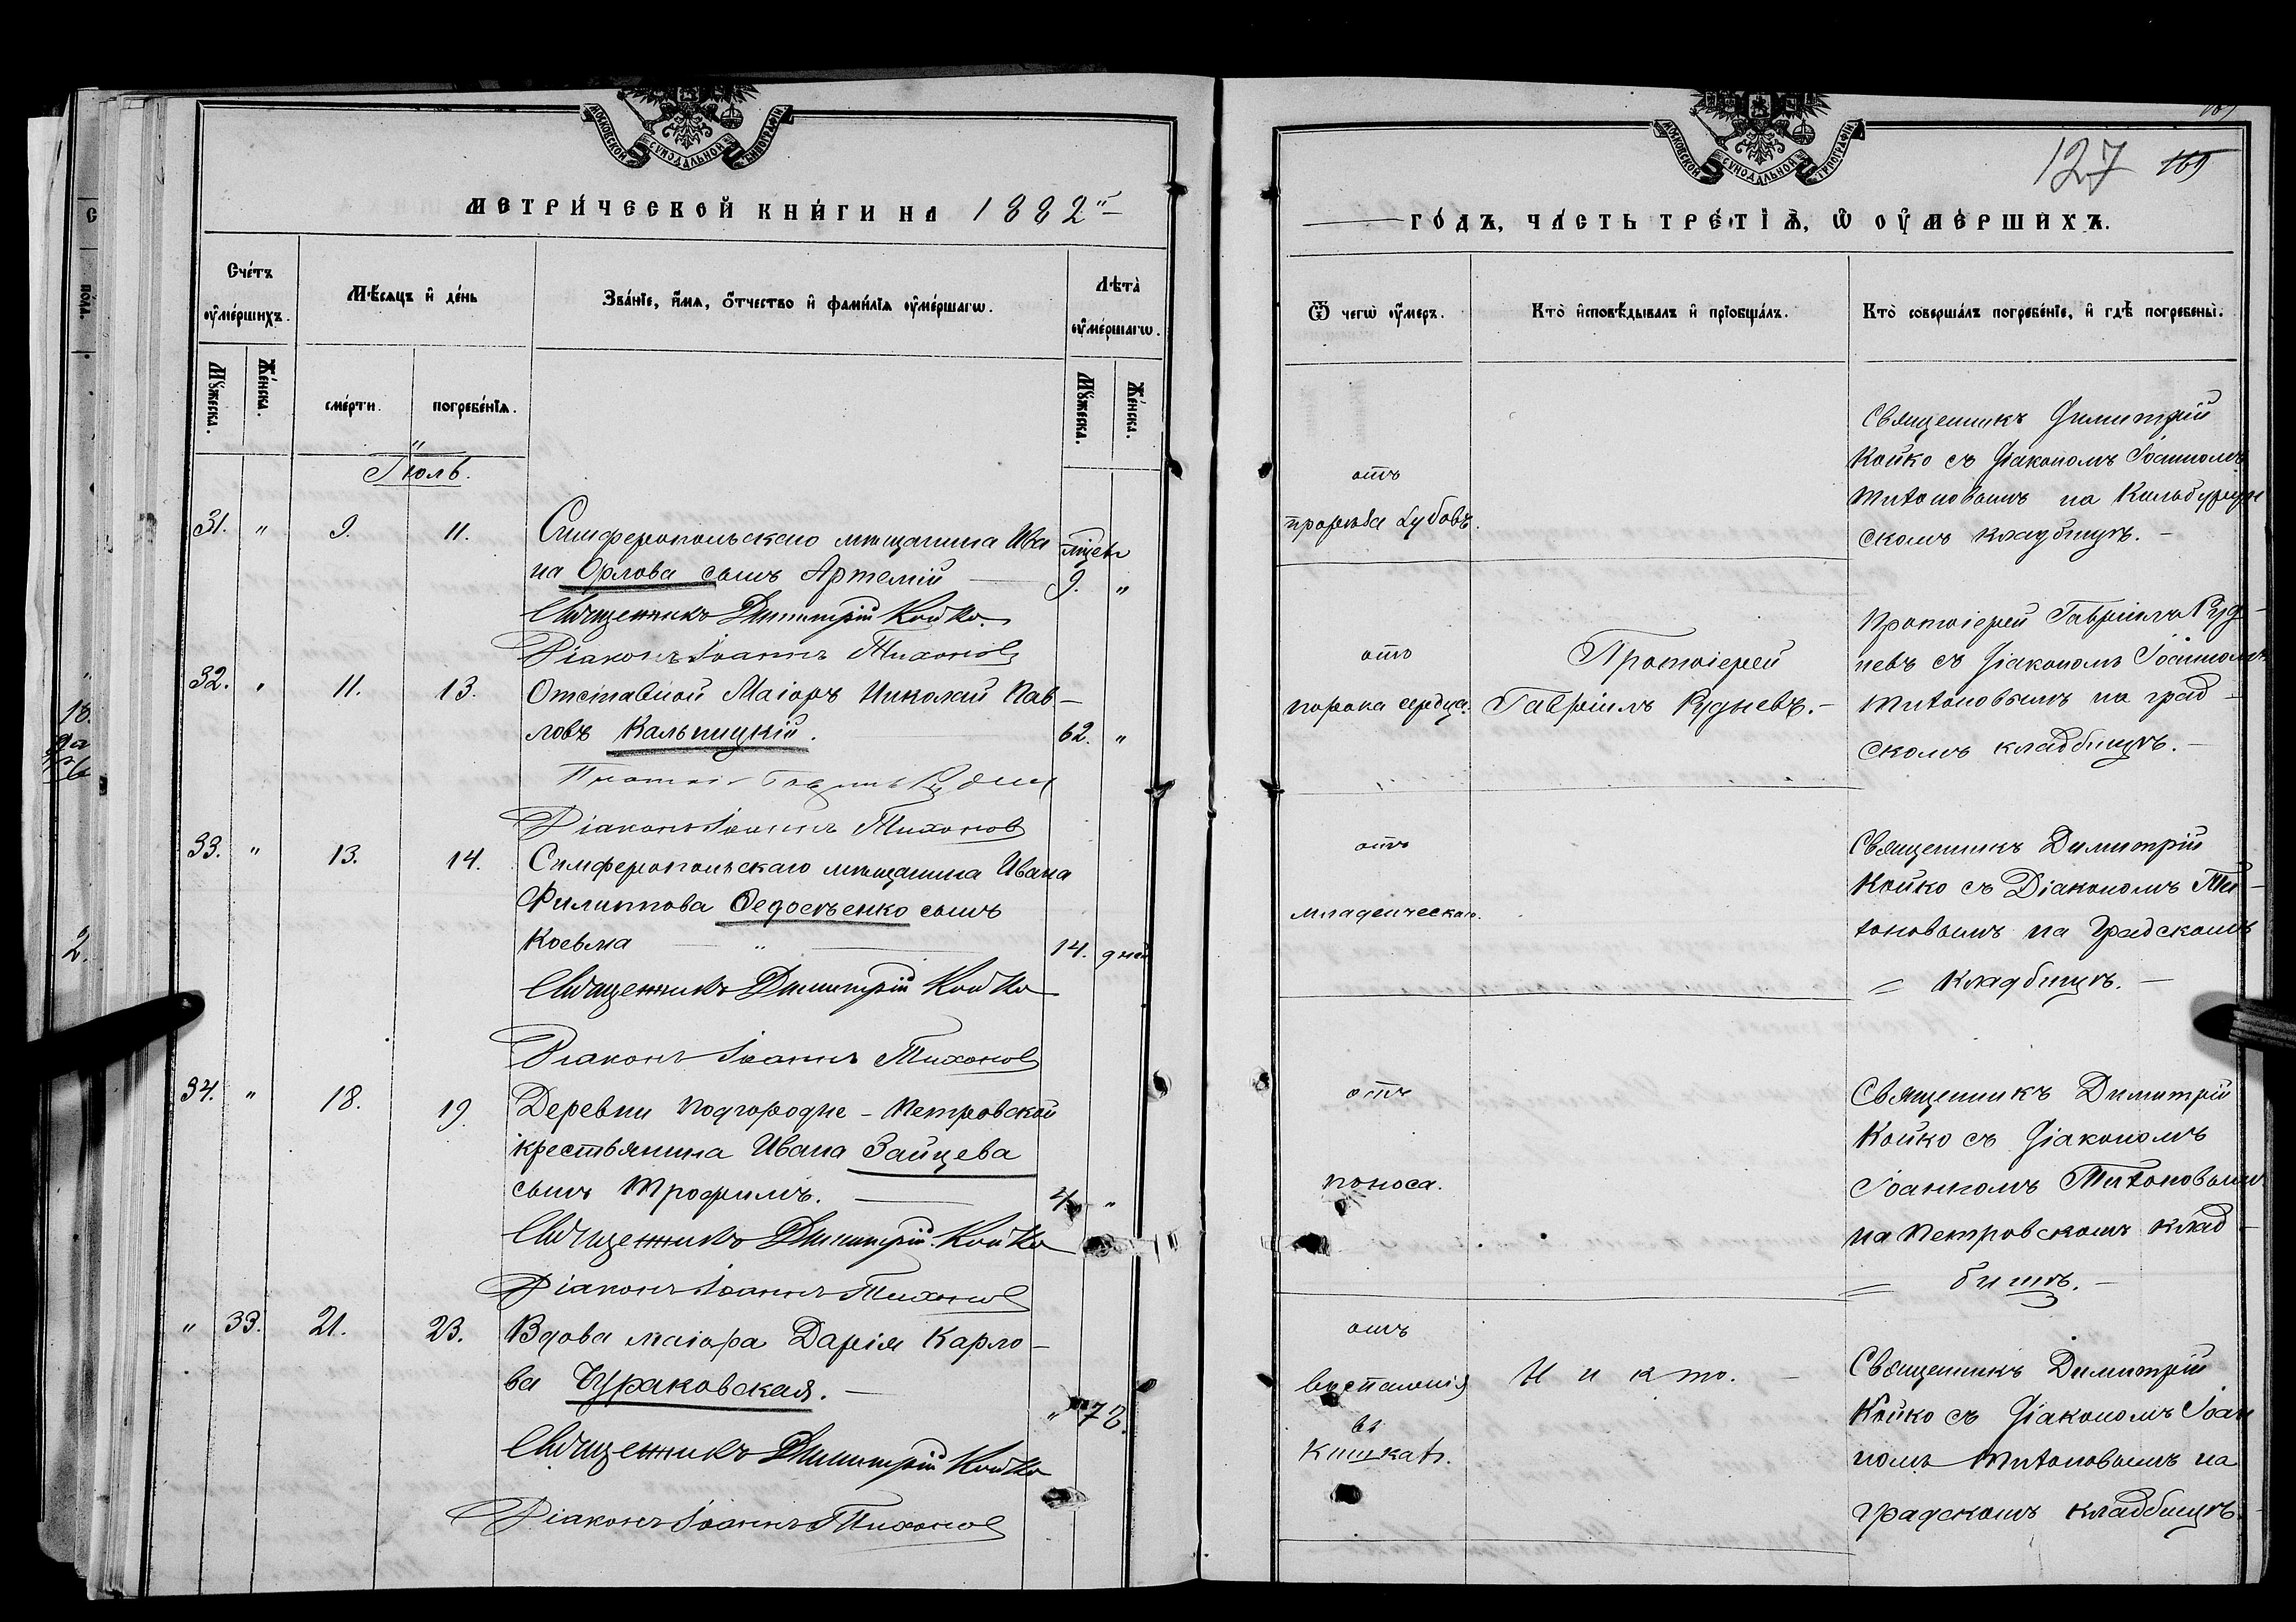 МОСКОВСКОЙ СУНОДАЛЬНОЙ ТИПОГРАФІИ
МЕТРИ́ЧЕСКОЙ КНИ́ГИ НА 1882й
Сче́тъ ᲂу҆ме́ршихъ.
Мѣ́сяцъ и҆ де́нь
Зва́нїе, и҆́мя, ѻ҆́тчество и҆ фами́лїя ᲂу҆ме́ршагѡ.
Лѣта̀ ᲂу҆ме́ршагѡ.
Мꙋ́жеска.
Же́нска.
сме́рти.
погребе́нїѧ.
Мꙋ́жеска.
Же́нска.
Іюль.
31. " 9. 11. Симферопольскаго мѣщанина Ива
на Орлова сынъ Артемій — 9. "
Священникъ Димитрій Койко.
Діаконъ Іоаннъ Тихоновъ
32. " 11. 13. Отставной Маіоръ Николай Пав-
ловъ Кальницкій. 62. "
Діаконъ Іоаннъ Тихоновъ
33. " 13. 14. Симферопольскаго мѣщанина Ивана
Филиппова Ѳедосѣенко сынъ
Косьма — " — 14. дней
Священникъ Димитрій Койко
Діаконъ Іоаннъ Тихоновъ
34. " 18. 19. Деревни Подгородне-Петровской
крестьянина Ивана Зайцева
сынъ Трофимъ. — 4. "
Священникъ Димитрій Койко
Діаконъ Іоаннъ Тихоновъ
" 33. 21. 23. Вдова маіора Дарія Карло-
ва Чураковская. —
" 72.
Священникъ Димитрій Койко
Діаконъ Іоаннъ Тихоновъ
МОСКОВСКОЙ СУНОДАЛЬНОЙ ТИПОГРАФІИ
127 169
ГО́ДЪ, ЧА́СТЬ ТРЕ́ТЇѦ, Ѡ҆ ОУ҆МЕ́РШИХЪ.
Ѿ чегѡ̀ ᲂу҆́меръ.
Кто̀ и҆сповѣ́дывалъ и҆ прїобща́лъ.
Кто̀ соверша́лъ погребе́нїе, и҆ гдѣ̀ погребены̀.
отъ
прорѣза зубовъ.
Священникъ Димитрій
Койко съ Діакономъ Іоанномъ
Тихоновымъ на Кильбурун
скомъ кладбищѣ. —
отъ
порока сердца.
Протоіерей
Гавріилъ Рудневъ. —
Протоіерей Гавріилъ Руд-
невъ съ Діакономъ Іоанномъ
Тихоновымъ на град-
скомъ кладбищѣ. —
отъ
младенческаго.
Священникъ Димитрій
Койко съ Діакономъ Ти-
хоновымъ на Градскомъ
= кладбищѣ. —
отъ
поноса.
Священникъ Димитрій
Койко съ Діакономъ
Іоанномъ Тихоновымъ
на Петровскомъ клад-
= бищѣ. —
отъ
воспаленія
въ
кишкахъ.
Никто. —
Священникъ Димитрій
Койко съ Діакономъ Іоан
номъ Тихоновымъ на
градскомъ кладбищѣ.